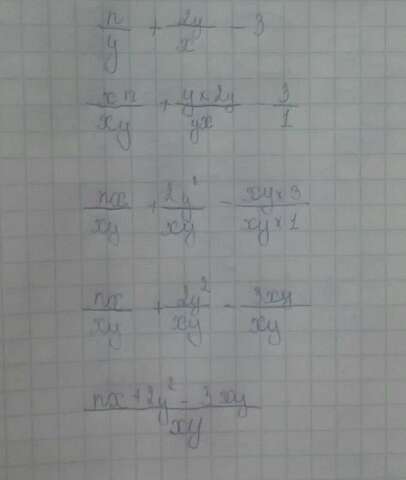 n/y + 2y/x - 3
xn/xy + y×2y/yx 3/1
nx/xy + 2y²/xy - xy×3/xy×1
nx/xy + 2y²/xy - 3xy/xy
nx+2y²-3xy/xy